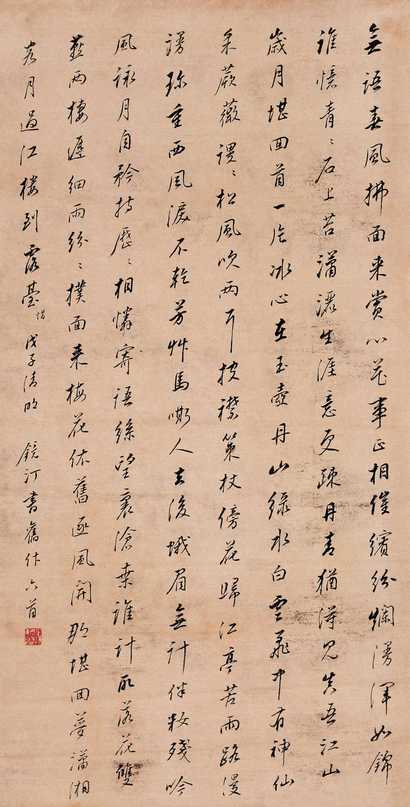 無語春風拂面来賞心花事正相催繽紛爛漫渾如錦
誰憶青々石上苔瀟灑生涯意更疎丹青猶得見真吾江山
歳月堪回首一片冰心在玉壺丹山綠水白雲飛中有神仙
采蕨薇謖々松風吹兩耳披襟策杖傍花歸江亭苦雨路漫
漫珍重西風淚不乾芳艸馬嘶人去後蛾眉無計伴粧殘吟
風詠月自矜持歷々相憐寄語絲望裏滄桑誰計取落花雙
燕兩棲遲細雨紛々撲面来梅花依舊逐風開那堪回夢瀟湘
月過江樓到露臺 戊子清明 鏡汀書舊作六首